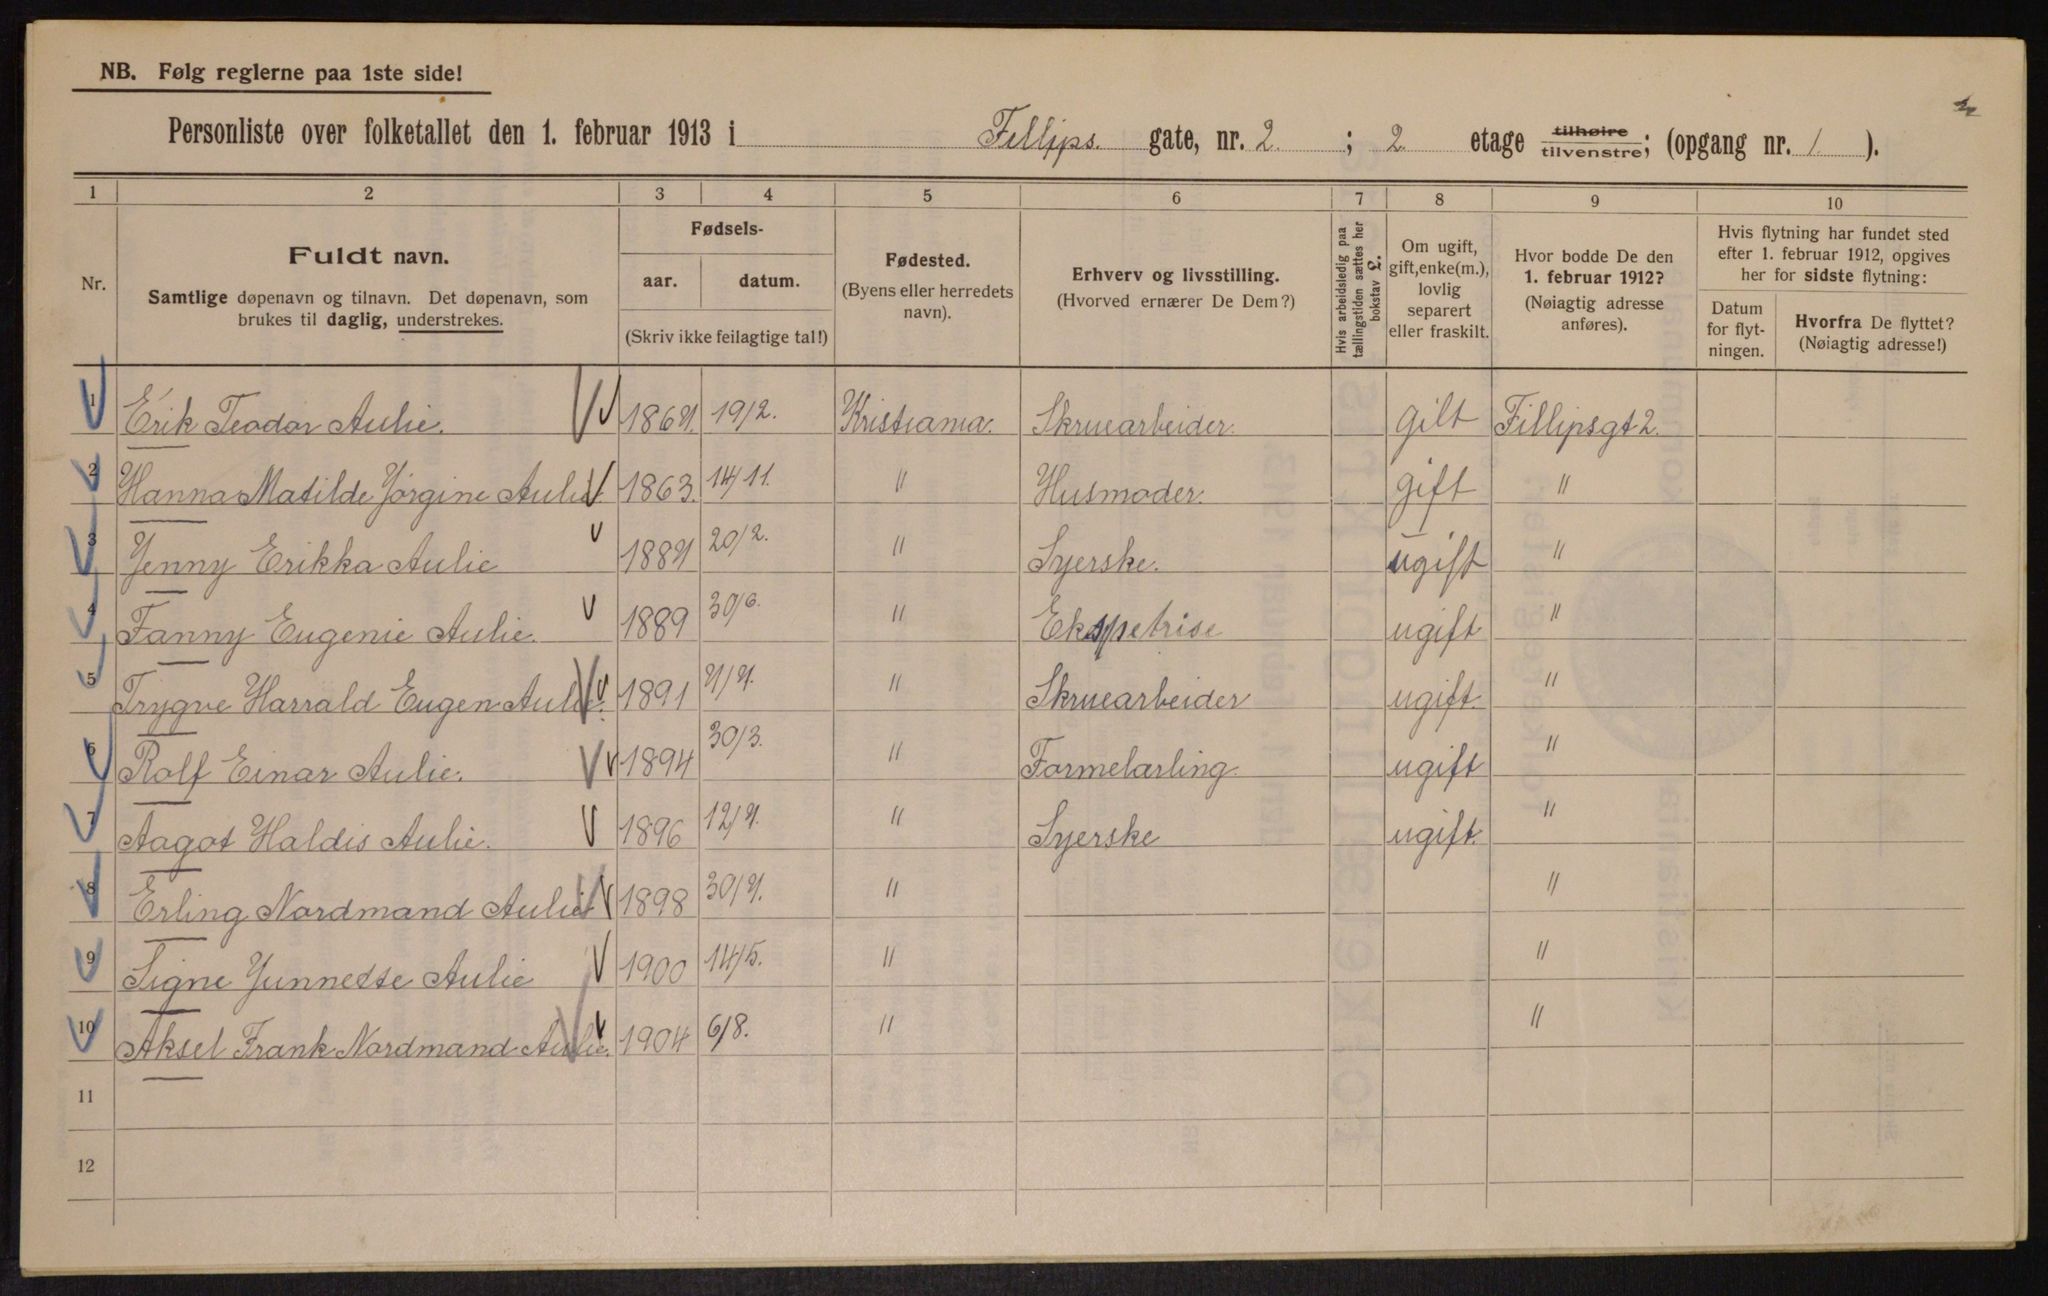 NB. Følg reglerne paa 1ste side!
Personliste over folketallet den 1. februar 1913 i Fillips. gate, nr. 2. ; 2. etage tilhøire tilvenstre; (opgang nr. 1 ).
1 2 3 4 5 6 7 8 9 10
Nr.
Fuldt navn.
Samtlige døpenavn og tilnavn. Det døpenavn, som
brukes til daglig, understrekes.
Fødsels-
aar. datum.
(Skriv ikke feilagtige tal!)
Fødested.
(Byens eller herredets
navn).
Erhverv og livsstilling.
(Hvorved ernærer De Dem?)
Hvis arbeidsledig paa
tællingstiden sættes her
bokstav L.
Om ugift,
gift, enke(m.),
lovlig
separert
eller fraskilt.
Hvor bodde De den
1. februar 1912?
(Nøiagtig adresse
anføres).
Hvis flytning har fundet sted
efter 1. februar 1912, opgives
her for sidste flytning:
Datum
for flyt-
ningen.
Hvorfra De flyttet?
(Nøiagtig adresse!)
1 Erik Teodor Aulie. 19/2. Kristiania. Skruearbeider. gift Fillipsgt 2.
2 Hanna Matilde Jørgine Aulie. 1863. 14/11. " Husmoder. gift "
3 Jenny Erikka Aulie 20/2. " Syerske. ugift "
4 Fanny Eugenie Aulie. 1889 30/6. " Ekspetrise ugift "
5 Trygve Harrald Eugen Aulie. 1891 " Skruearbeider ugift. "
6 Rolf Einar Aulie. 1894 30/3. " Formelærling. ugift "
7 Aagot Haldis Aulie. 1896 " Syerske ugift. "
8 Erling Nordmand Aulie 1898 " "
9 Signe Junnette Aulie 1900 14/5. " "
10 Aksel Frank Nordmand Aulie. 1904 6/8. " "
11
12